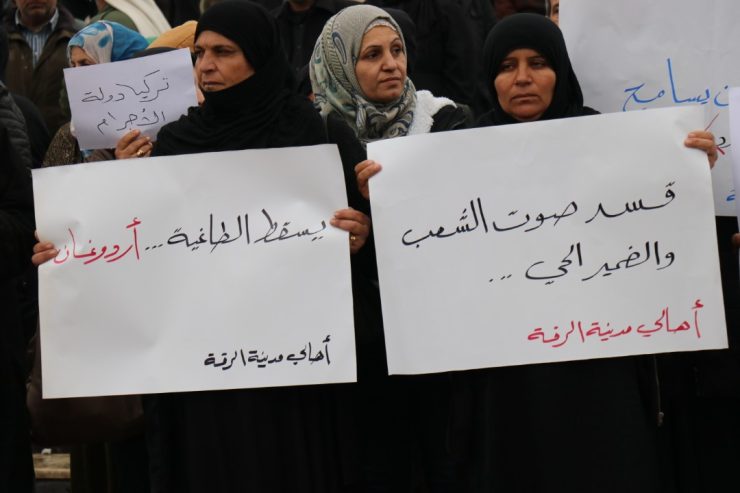 تركيا دولة
الأجرام
يسقط الطاغية... أردوغان
أهالي مدينة الرقة
قسد صوت الشعب
والضمير الحي ...
أهالي مدينة الرقة
يسامح